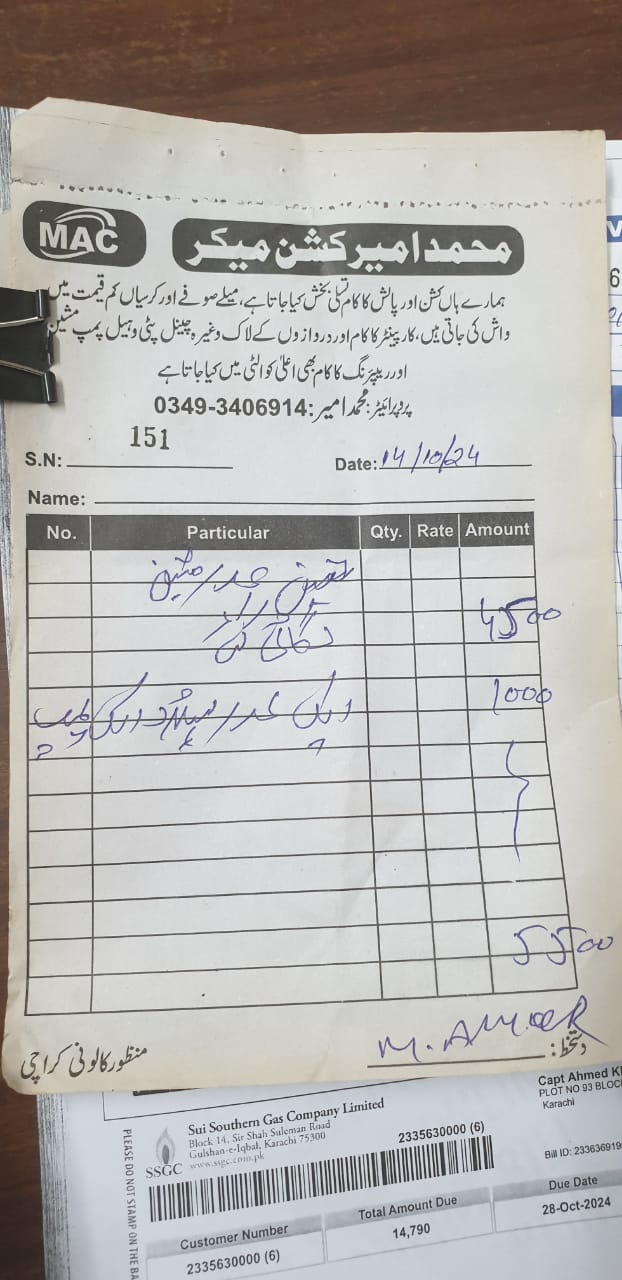 MAC
محمد امیر کشن میکر
ہمارے ہاں کشن اور پالش کا کام تسلی بخش کیا جاتا ہے، میلے صوفے اور کرسیاں کم قیمت میں
واش کی جاتی ہیں، کارپینٹر کا کام اور دروازوں کے لاک وغیرہ چینل پٹی وہیل پمپ مشین
اور ریپیرنگ کا کام بھی اعلیٰ کوالٹی میں کیا جاتا ہے
پروپرائیٹر: محمد امیر: 0349-3406914
S.N: 151 Date: 14/10/24
Name:
No. Particular Qty. Rate Amount
4500
1000
5500
دستخط: M. AMEER
منظور کالونی کراچی
SSGC
Sui Southern Gas Company Limited
Block 14, Sir Shah Suleman Road
Gulshan-e-Iqbal, Karachi 75300
www.ssgc.com.pk
2335630000 (6)
Capt Ahmed
PLOT NO 93
Karachi
Bill ID:
Customer Number Total Amount Due Due Date
2335630000 (6) 14,790 28-Oct-2024
PLEASE DO NOT STAMP ON THE